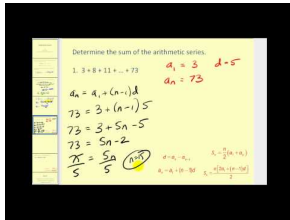 Determine the sum of the arithmetic series.
1. 3 + 8 + 11 + ... + 73
a₁ = 3 d = 5
aₙ = 73
aₙ = a₁ + (n-1)d
73 = 3 + (n-1)5
73 = 3 + 5n - 5
73 = 5n - 2
75/5 = 5n/5 n=15
d = aₙ - aₙ₋₁
Sₙ = n/2 (a₁ + aₙ)
aₙ = a₁ + (n-1)d
Sₙ = n[2a₁ + (n-1)d]/2